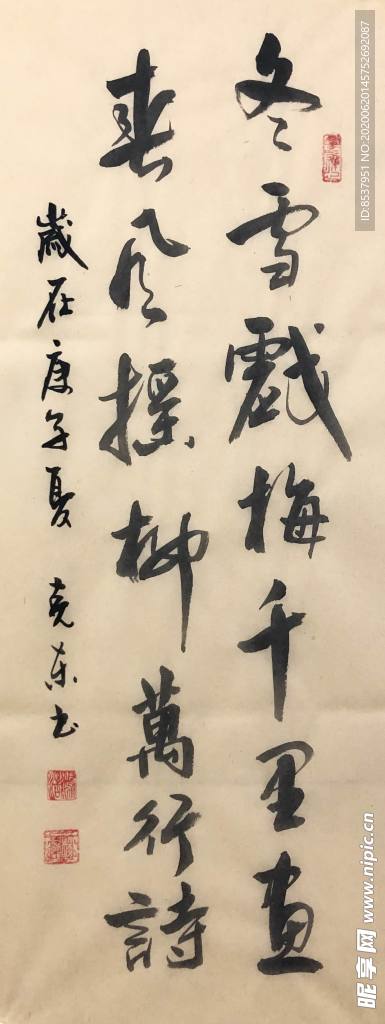 冬雪戲梅千里畫
春风摇柳萬行詩
歲在庚子夏 克東书
ID:8537951 NO:20200620145752692087
昵享网 www.nipic.cn